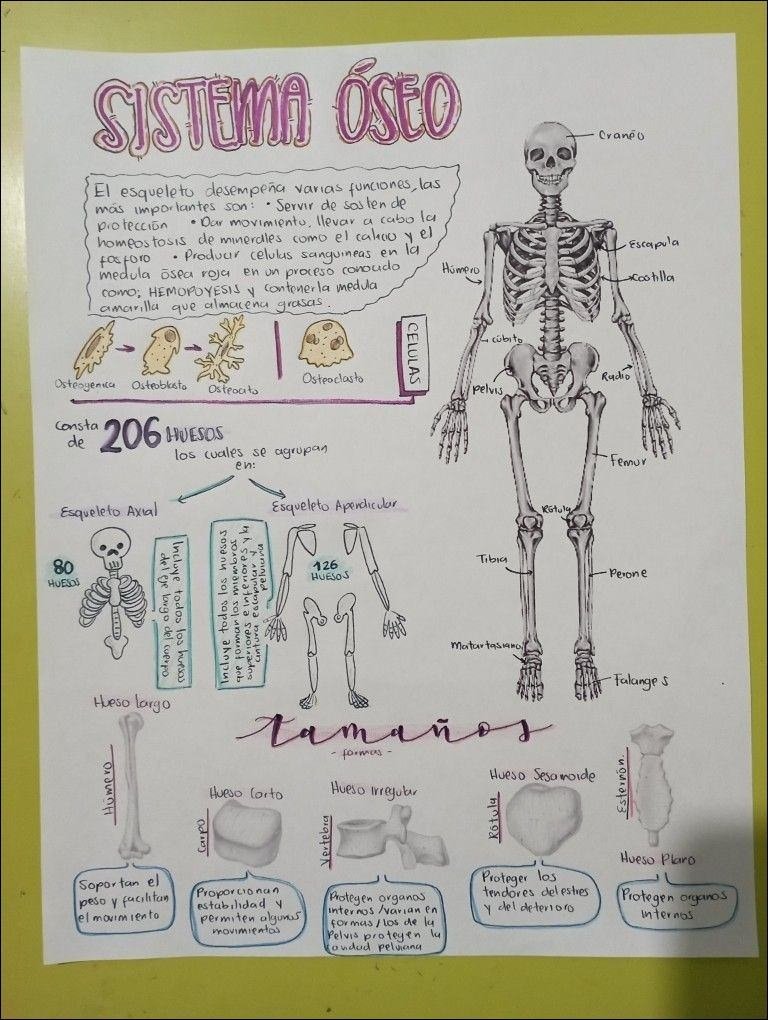 SISTEMA ÓSEO
El esqueleto desempeña varias funciones, las
más importantes son: • Servir de sosten de
protección • Dar movimiento, llevar a cabo la
homeostosis de minerales como el calcio y el
fosforo • Producir celulas sanguineas en la
medula ósea roja en un proceso conocido
como; HEMOPOYESIS y contener la medula
amarilla que almacena grasas.
Osteogenica
Osteoblasto
Osteocito
Osteoclasto
CELULAS
Consta
de 206 HUESOS
los cuales se agrupan
en:
Esqueleto Axial
80
HUESOS
Incluye todos los huesos
del eje largo del cuerpo
Esqueleto Apendicular
126
HUESOS
Incluye todos los huesos
que forman los miembros
superiores e inferiores y la
cintura escapular y
pelviana
Cranéo
Escapula
Costilla
Húmero
cúbito
Radio
pelvis
Femur
Rótula
Tibia
Perone
Matartasiano
Falanges
tamaños
- formas -
Hueso largo
Húmero
Soportan el
peso y facilitan
el movimiento
Hueso Corto
Carpo
Proporcionan
estabilidad y
permiten algunos
movimientos
Hueso Irregular
Vertebra
Protegen organos
internos /varian en
formas/los de la
Pelvis protegen la
cavidad pelviana
Hueso Sesamoide
Rótula
Proteger los
tendores del estres
y del deterioro
Esternón.
Hueso Plano
Protegen organos
internos